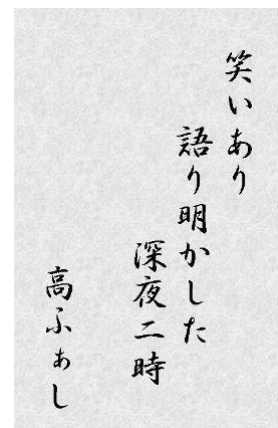 笑いあり
語り明かした
深夜二時
高ふぁし